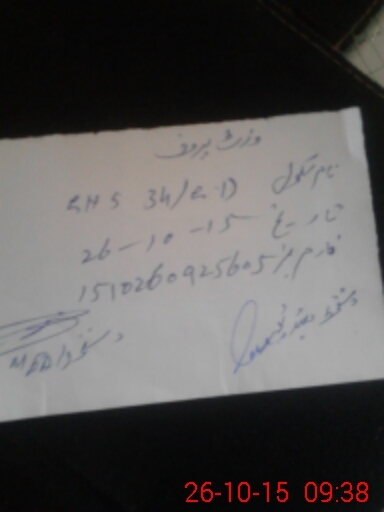 وزٹ پروف
نام سکول GHS 34/G.D
تاریخ 26-10-15
فارم نمبر 1510260925605
دستخط
دستخط MEA
26-10-15 09:38